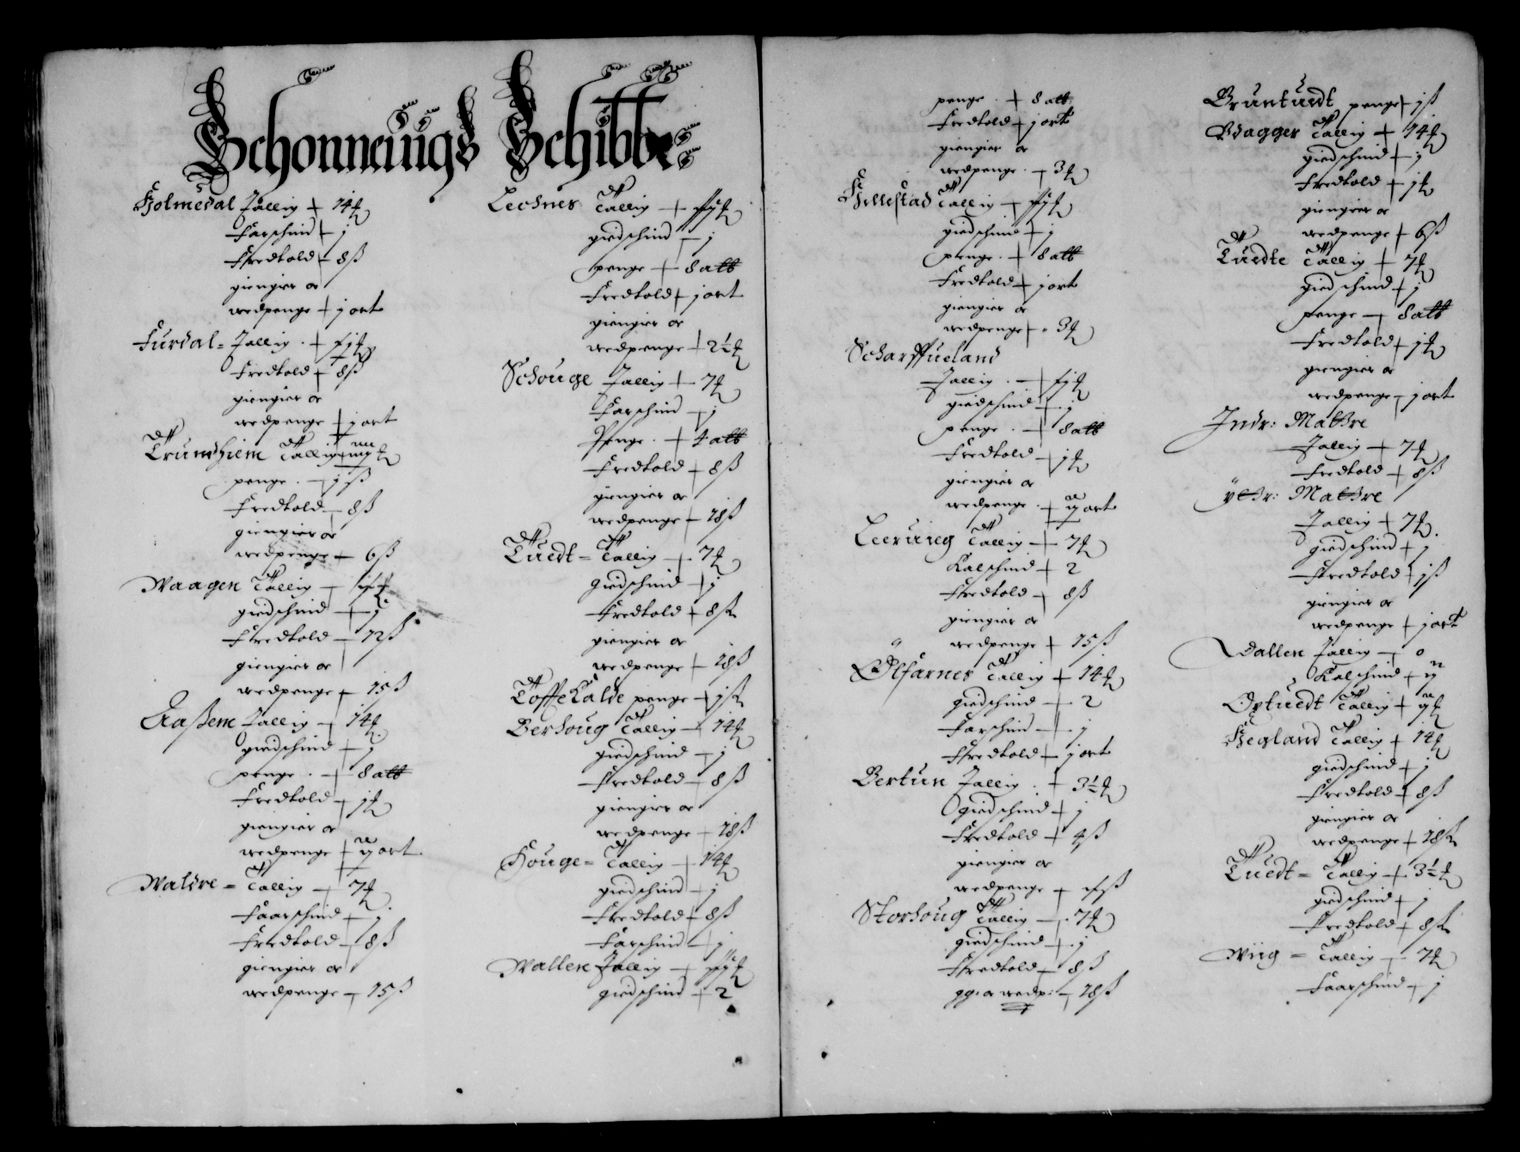 Schonneuigs Schibbr
Holmedal Tallig + 14 ℔
Faarschind + j
Fredtold + 8 ß
giengier or
wedpenge + j ort
Furdal = Tallig + ƒij ℔
Fredtold + 8 ß
giengier or
wedpenge + j ort
Trundhiem Tallig
penge + j ß
Fredtold 8 ß
giengier or
wedpenge + 6 ß
Waagen Tallig
giedschind + j
Fredtold + 12 ß
giengier or
wedpenge + 15 ß
Aaßem Tallig + 14 ℔
giedschind + j
penge + 8 alb
Fredtold + j ℔
giengier or
wedpenge + ij ort
Waldre = Tallig + 7 ℔
Faarschind + j
Fredtold + 8 ß
giengier or
wedpenge + 15 ß
Lechnes Tallig
giedschind + j
penge + 8 alb
Fredtold + j ort
giengier or
wedpenge + 2½ ℔
Schouge Tallig + 7 ℔
Farschind + j
Penge + 4 alb
Fredtold + 8 ß
giengier or
wedpenge + 18 ß
Tuedt = Tallig + 7 ℔
giedschind + j
Fredtold + 8 ß
giengier or
wedpenge + 18 ß
Toffte Kalde penge + j ß
Berhoug Tallig + 14 ℔
giedschind + j
Fredtold + 8 ß
giengier or
wedpenge + 18 ß
Houge = Tallig + 14 ℔
giedschind + j
Fredtold + 8 ß
Farschind + j
Wallen Tallig
giedschind + 2
penge + 8 alb
Fredtold + j ort
giengier or
wedpenge + 3 ℔
Hillestad Tallig
giedschind + j
penge + 8 alb
Fredtold + j ort
giengier or
wedpenge + 3 ℔
Scharffueland
Tallig
giedschind + j
penge + 8 alb
Fredtold + j ℔
giengier or
wedpenge + ij ort
Leeruiig Tallig + 7 ℔
Kalschind + 2
Fredtold + 8 ß
giengier or
wedpenge + 15 ß
Ølfarnes Tallig + 14 ℔
giedschind + 2
Farschind + j
Fredtold + j ort
Bertun Tallig + 3½ ℔
giedschind + j
Fredtold + 4 ß
giengier or
wedpenge
Storhoug Tallig + 7 ℔
giedschind + j
Fredtold + 8 ß
gg: or wedp: + 18 ß
Gruntuedt penge + j ß
Wagger Tallig + 14 ℔
giedschind + j
Fredtold + j ℔
giengier or
wedpenge + 6 ß
Tuedte Tallig + 7 ℔
giedschind + j
penge + 8 alb
Fredtold + j ℔
giengier or
wedpenge + j ort
Indr: Mattre
Tallig + 7 ℔
Fredtold + 8 ß
ÿttr: Mattre
Tallig + 7 ℔
giedschind + j
Fredtold j ß
giengier or
wedpenge + j ort
Dallen Tallig + o
Kalschind + ij
Optuedt Tallig + ij ℔
Hegland Tallig + 14 ℔
giedschind + j
Fredtold + 8 ß
giengier or
wedpenge + 18 ß
Tuedt = Tallig + 3½ ℔
giedschind + j
Fredtold + 8 ß
Wiig = Tallig + 7 ℔
Faarschind + j